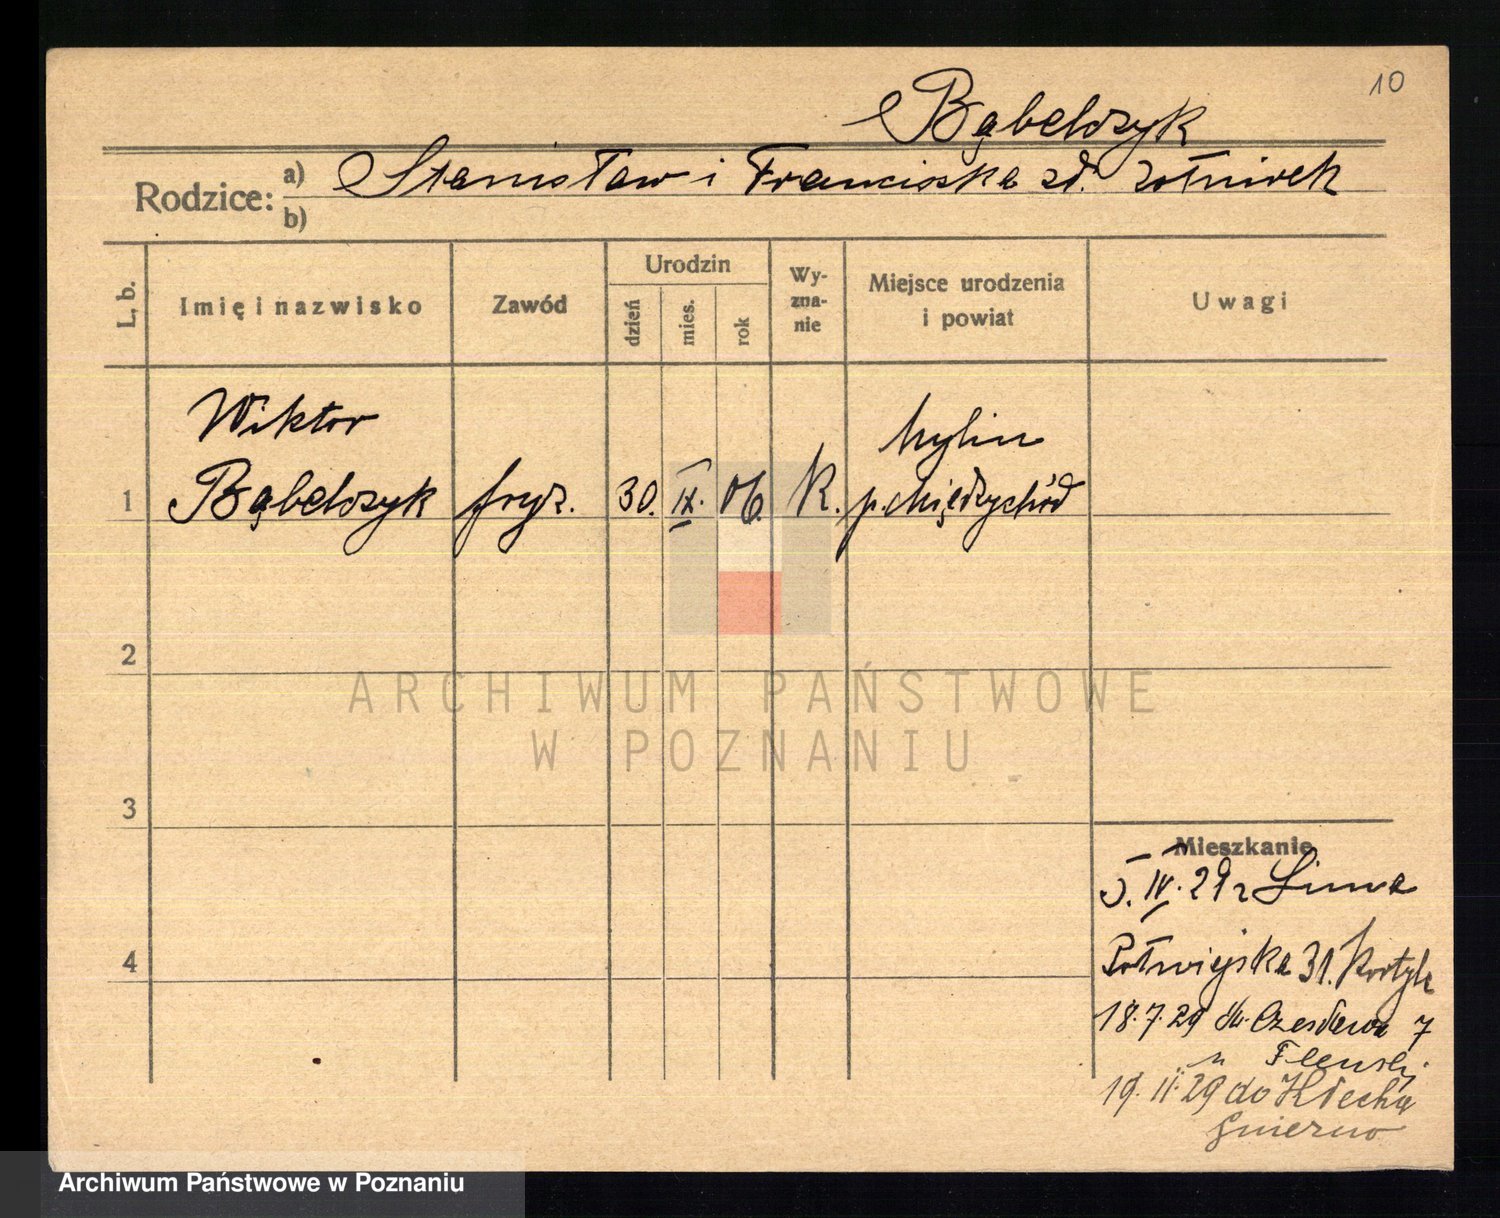 10
Bąbelczyk
Rodzice: a) Stanisław i Franciszka zd. Żołnirek
b)
L. b.
Imię i nazwisko
Zawód
Urodzin
dzień
mies.
rok
Wy-
zna-
nie
Miejsce urodzenia
i powiat
Uwagi
Wiktor
Mylin
1 Bąbelczyk fryz. 30. IX. 06. K. p. Międzychód
2
ARCHIWUM PAŃSTWOWE
W POZNANIU
3
Mieszkanie
5. IV. 29 z
4
Półwiejska 31.
18.7.29 św. Czesława 7
u
19. 11. 29 do Kłecka
Gniezno
Archiwum Państwowe w Poznaniu